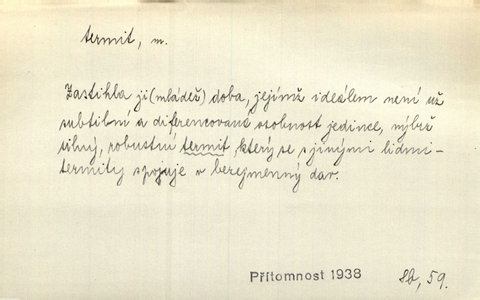 termit, m.
Zastihla ji (mládež) doba, jejímž ideálem není už
subtilní a diferencovaná osobnost jedince, nýbrž
silný, robustní termit, který se s jinými lidmi-
termity spojuje v bezejmenný dav.
Přítomnost 1938
Sb, 59.